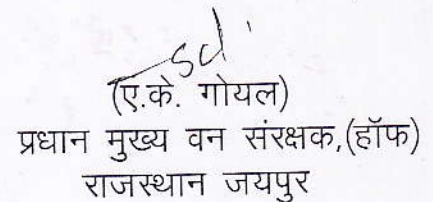 sd
(ए.के. गोयल)
प्रधान मुख्य वन संरक्षक,(हॉफ)
राजस्थान जयपुर